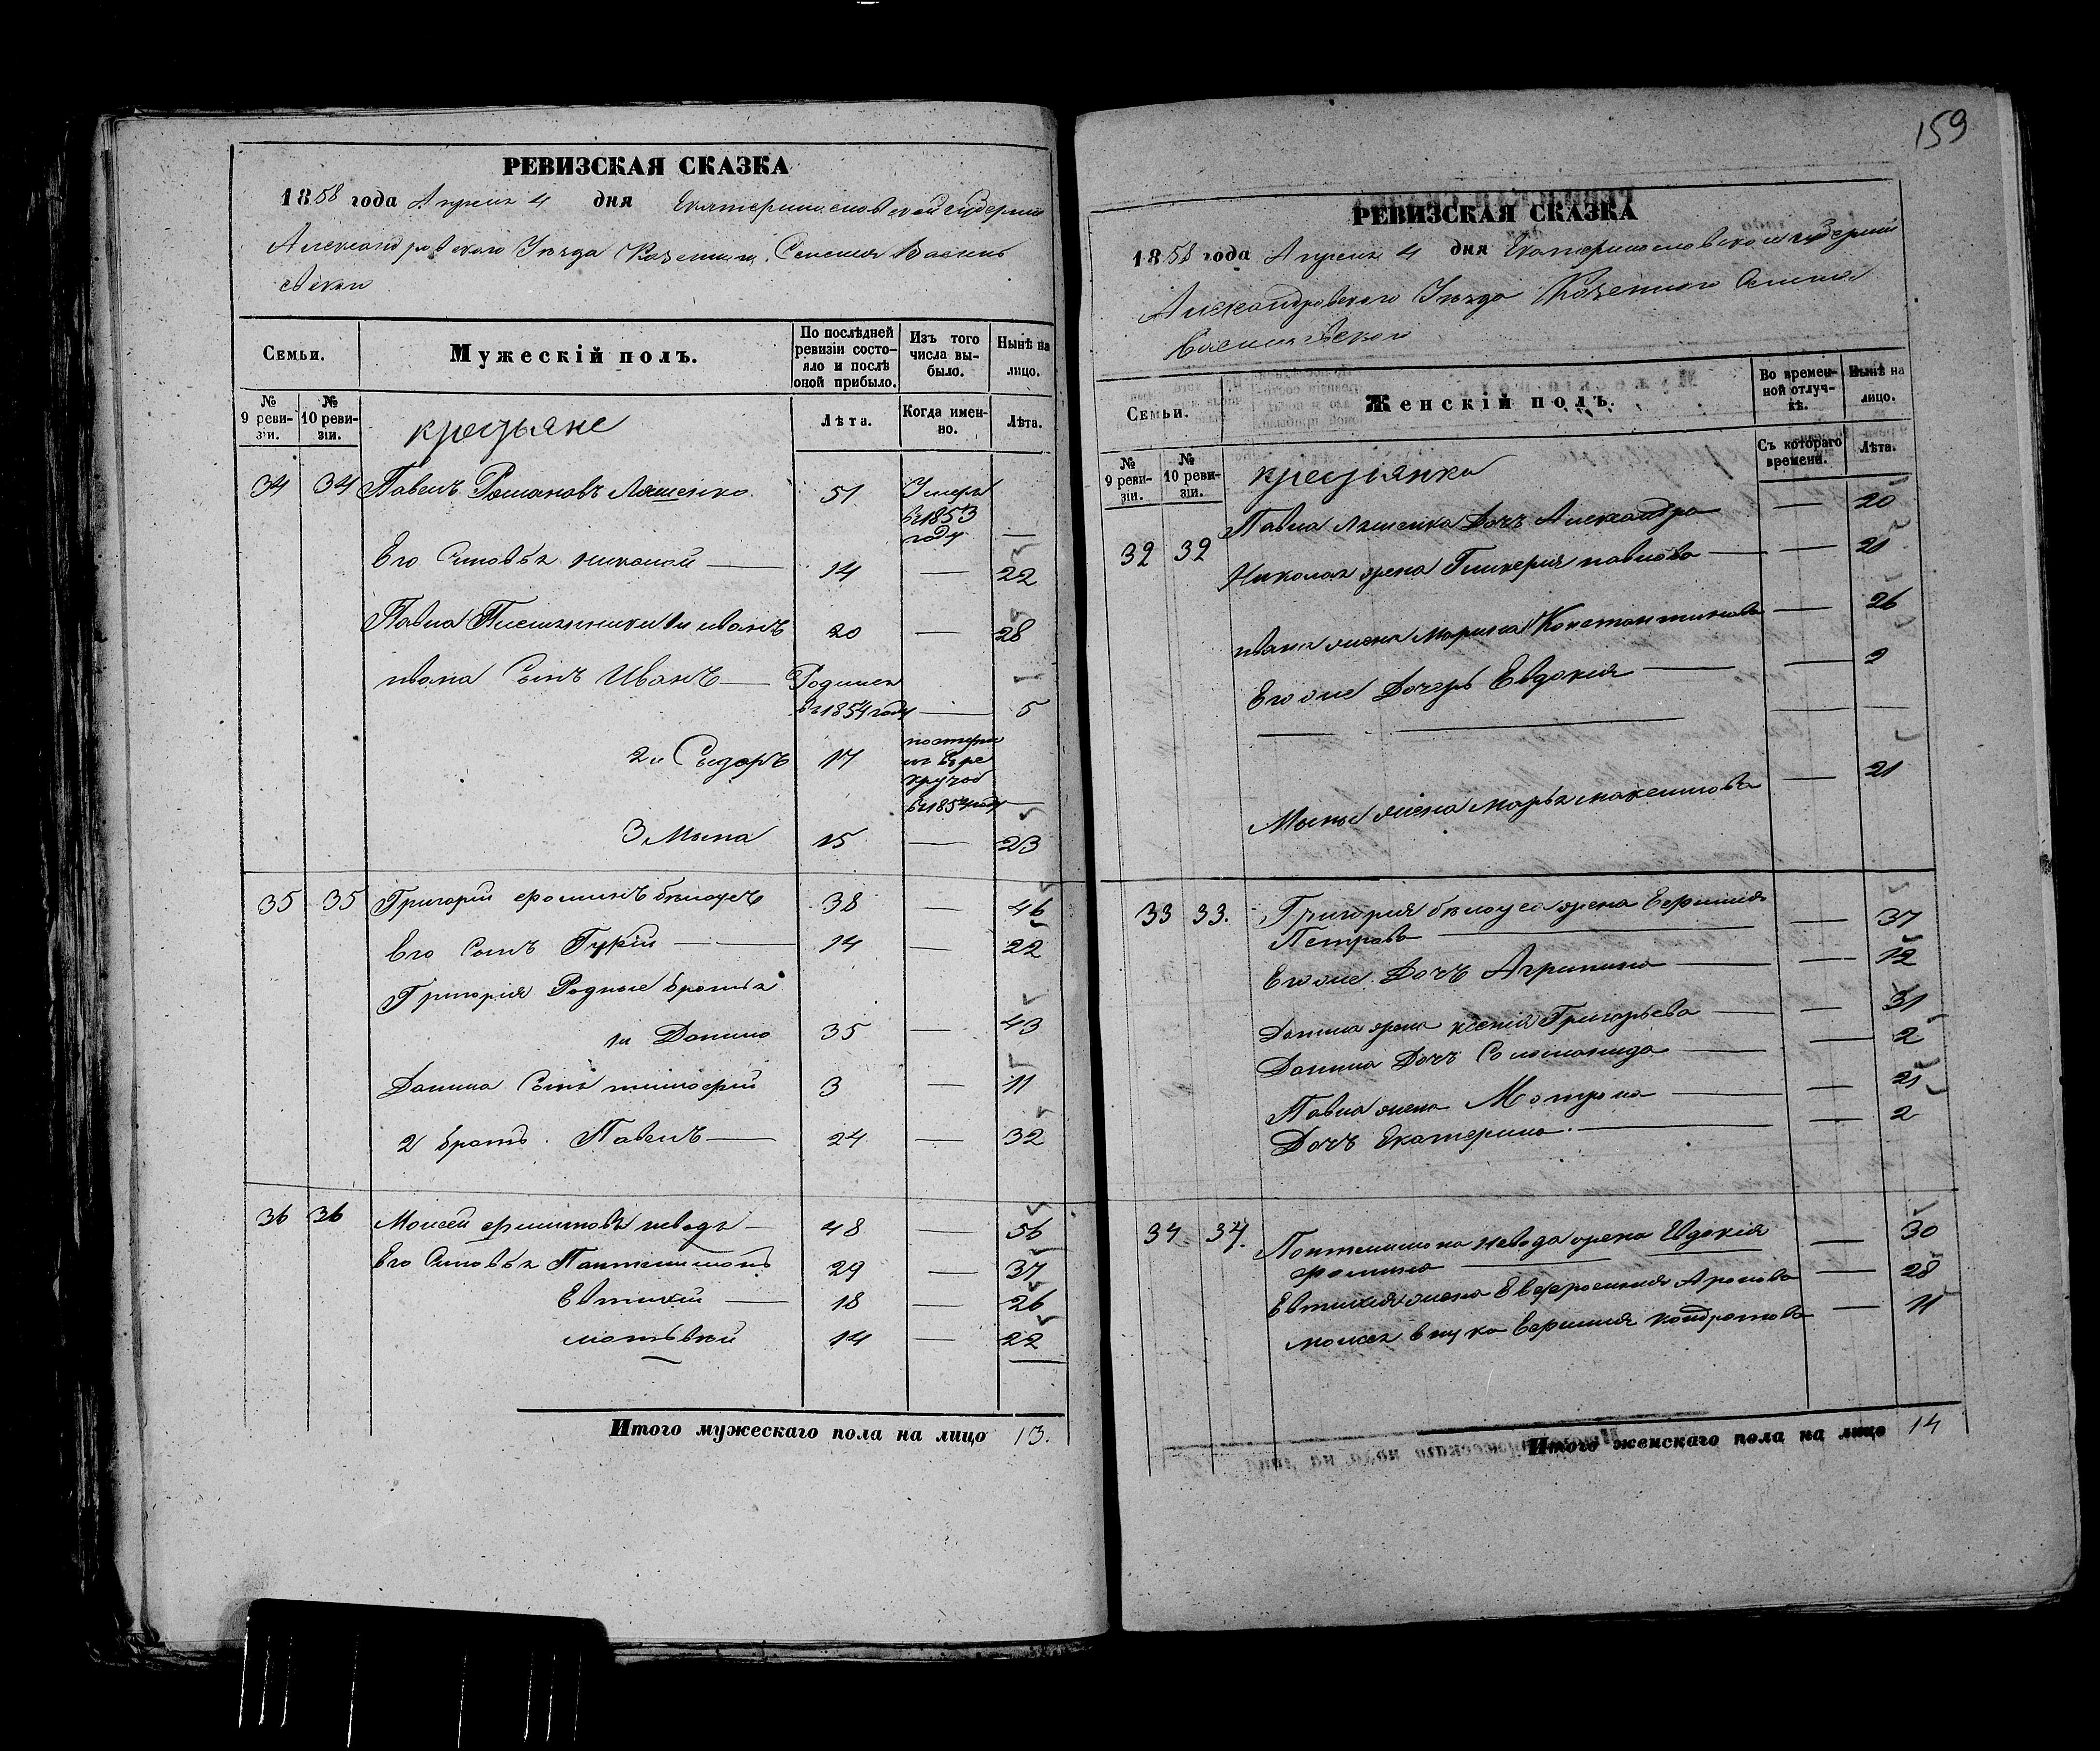 159
РЕВИЗСКАЯ СКАЗКА
1858 года Апреля 4 дня Екатеринославской Губернии
Александровского Уезда Казенного Селения Василь
евской
Семьи.
Мужескій полъ.
По послѣдней ревизіи состояло и послѣ оной прибыло.
Изъ того числа выбыло.
Нынѣ на лицо.
№ 9 ревизіи.
№ 10 ревизіи.
крестьяне
Лѣта.
Когда именно.
Лѣта.
34 34 Павелъ Романовъ Ляшенко 51 Умеръ
въ 1853
году —
Его Сыновья николай — 14 — 22
Павла Племянники 1й иванъ 20 — 28
ивана Сынъ Иванъ — Родился
въ 1854 году — 5
2й Сыдоръ 17
въ рекруты
3 Мына 15 — 23
35 35 Григорий фоминъ белоусъ 38 — 46
Его Сынъ Гурий — 14 — 22
Григория Родные братья
1й Данило 35 — 43
Данила Сынъ тимофей 3 — 11
2й братъ Павелъ — 24 — 32
36 36 Моисей филиповъ невода — 48 — 56
Его Сыновья Пантелимонъ 29 — 37
Евтихий — 18 — 26
матвѣй 14 — 22
Итого мужескаго пола на лицо 13.
РЕВИЗСКАЯ СКАЗКА
1858 года Апреля 4 дня Екатеринославской губернии
Александровского Уезда Казенного Селения
Васильевской
Семьи.
Женскій полъ.
Во временной отлучкѣ.
Нынѣ на лицо.
№ 9 ревизіи.
№ 10 ревизіи.
крестьянка
Съ котораго времени.
Лѣта.
Павла Ляшенка Дочь Александра — 20
32 32 Николая жена Гликерия павлова — — 21
ивана жена Марина Константинова — 26
Его же Дочерь Евдокия — — 2
Мыны жена марья максимова — 21
33 33. Григория белоуса жена Евфимия
Петрова — — 37
Его же Дочь Агрипина — — 12
Данила жена ксения Григорьева — — 31
Данила Дочь Соломонида — — 2
Павла жена Матрона — — 21
Дочь Екатерина — — 2
34 34. Пантелимона невода жена Евдокия
фомина — — 30
Евтихия жена Евфросиния Аронова — 28
моисея внука Евфимия кондратова — 11
Итого женскаго пола на лицо 14